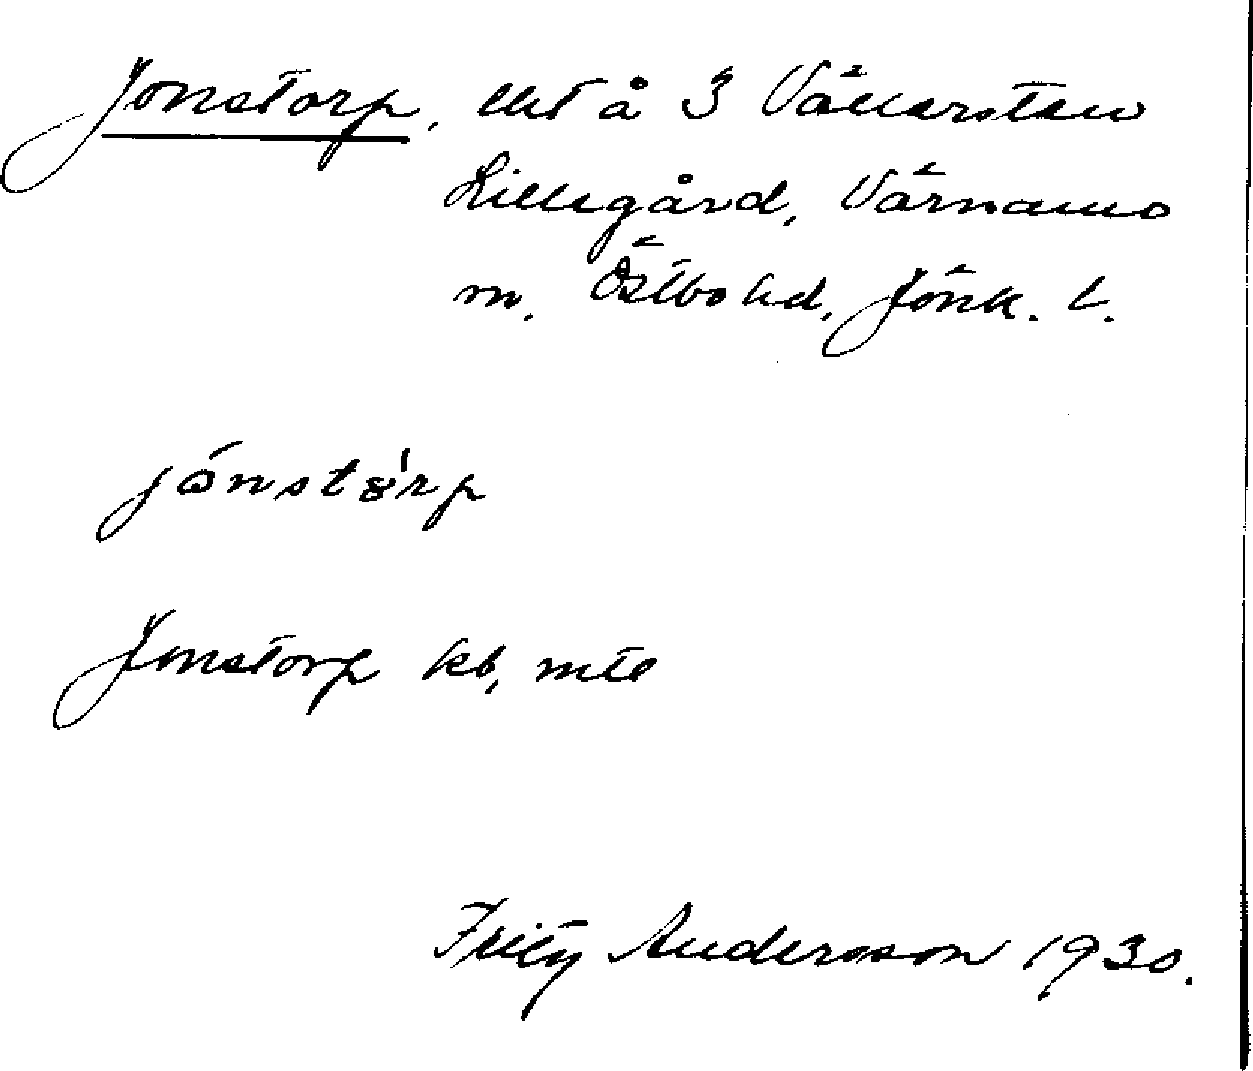 Jonstorp, lht å 3 Vällersten
Lillegård, Värnamo
sn, Östbo hd, Jönk. l.
jónstòrp
Jonstorp kb, mtl
Fritz Andersson 1930.